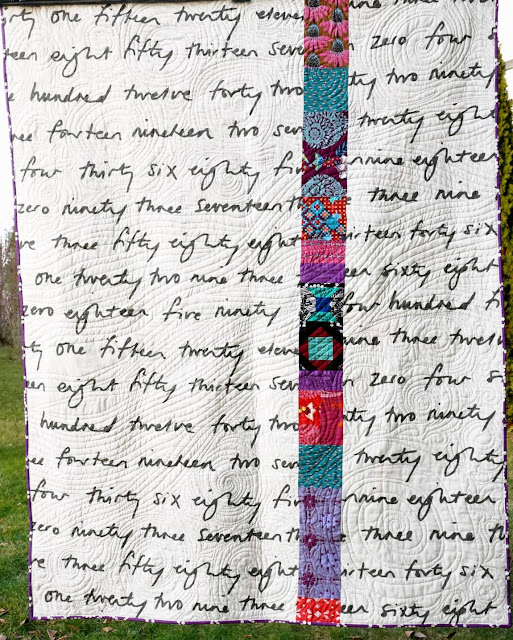 rty one fifteen twenty eleve nine three twelv
een eight fifty thirteen seve n zero four s
e hundred twelve forty two ty two ninety
ee fourteen nineteen two sev twenty eight
four thirty six eighty fiv nine eighteen
zero ninety three seventeen th three nine
ve three fifty eighty eight irteen forty six
one twenty two nine three een sixty eight
zero eighteen five ninety four hundred fi
ty one fifteen twenty eleve nine three twelv
een eight fifty thirteen sev n zero four s
hundred twelve forty two nty two ninety
ee fourteen nineteen two sev twenty eight
four thirty six eighty fiv nine eighteen
zero ninety three seventeen th three nine th
ve three fifty eighty eight irteen forty six
one twenty two nine three een sixty eight